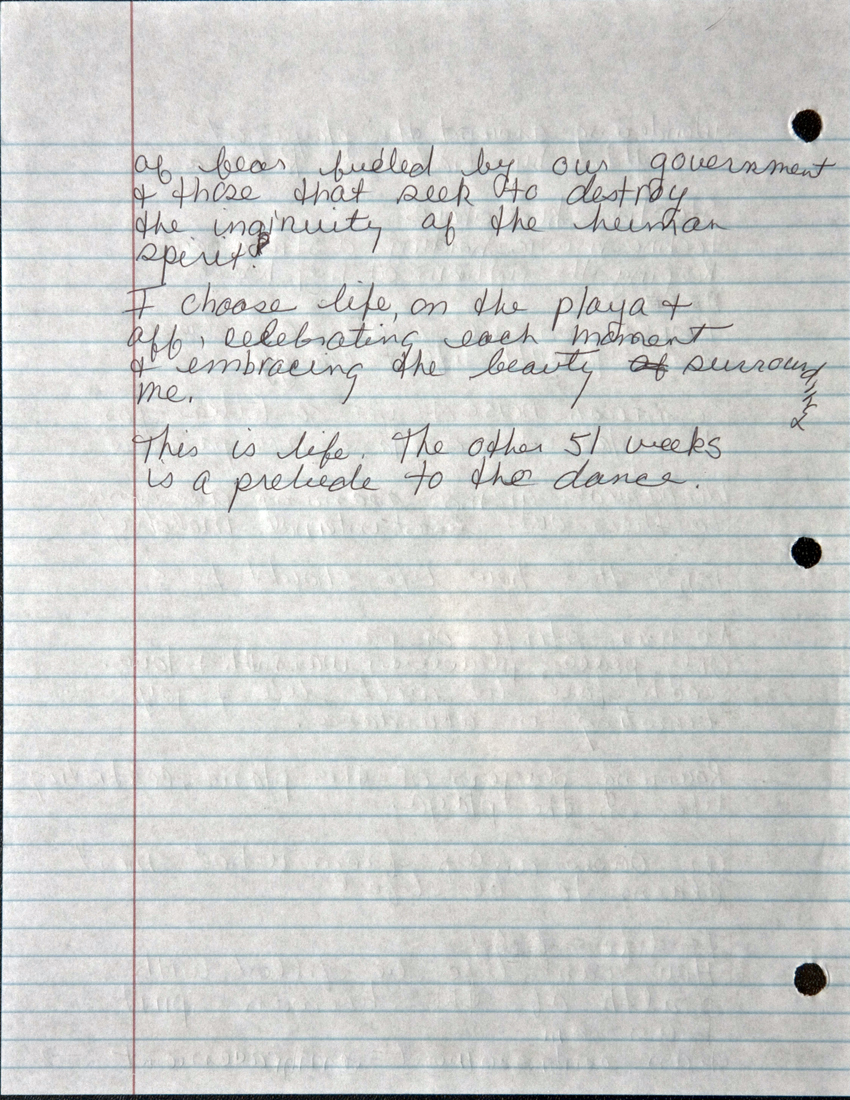 of fear fueled by our government
& those that seek to destroy
the inginuity of the human
spirit?
I choose life, on the playa &
off, celebrating each moment
& embracing the beauty of surrounding
me.
This is life. The other 51 weeks
is a prelude to the dance.